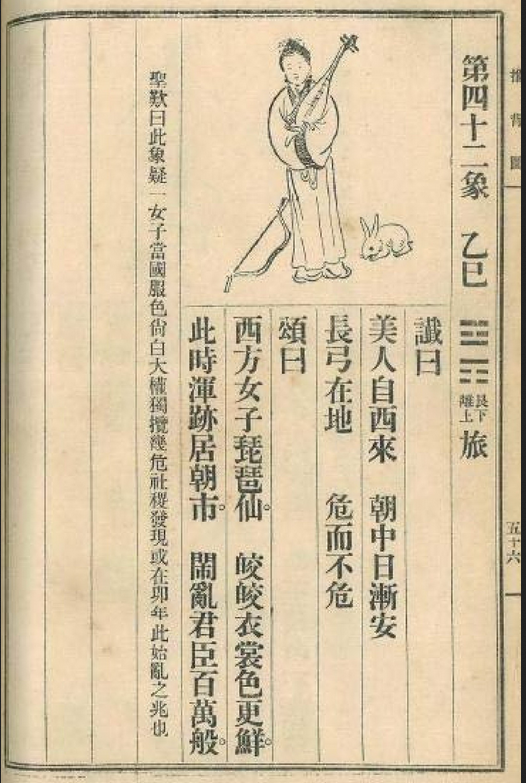 推背圖
五十六
第四十二象 乙巳 艮下離上 旅
讖曰
美人自西來 朝中日漸安
長弓在地 危而不危
頌曰
西方女子琵琶仙。 皎皎衣裳色更鮮。
此時渾跡居朝市。 閙亂君臣百萬般。
聖歎曰此象疑一女子當國服色尙白大權獨攬幾危社稷發現或在卯年此始亂之兆也